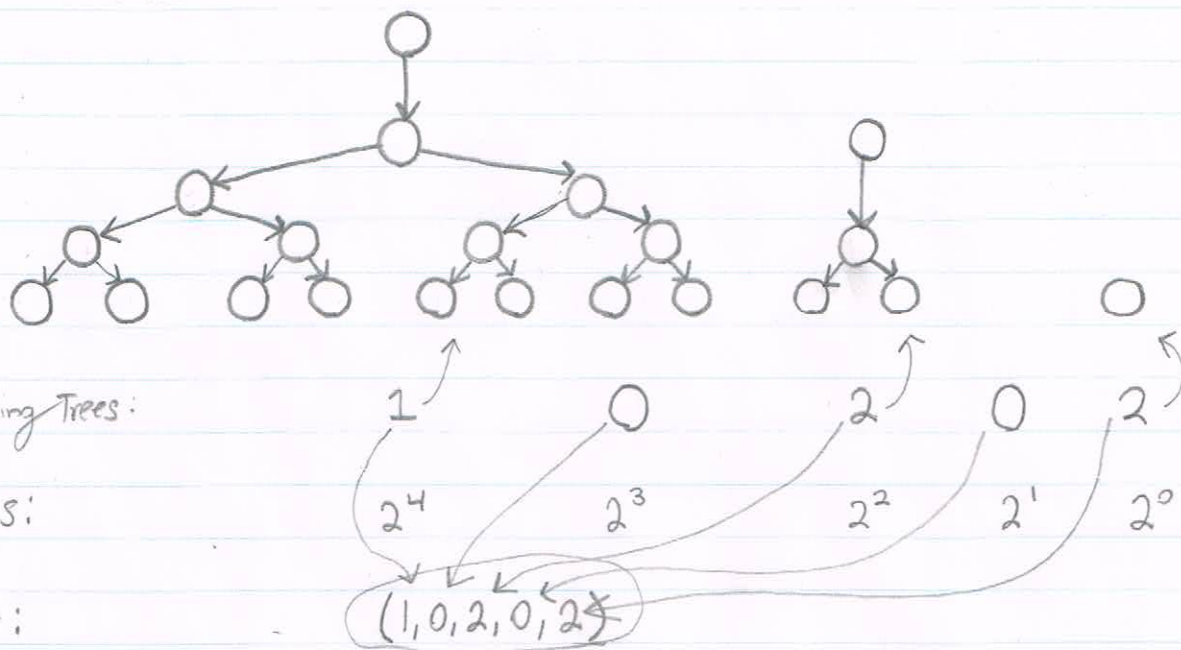 ing Trees: 1 0 2 0 2
s: 2⁴ 2³ 2² 2¹ 2⁰
: (1,0,2,0,2)